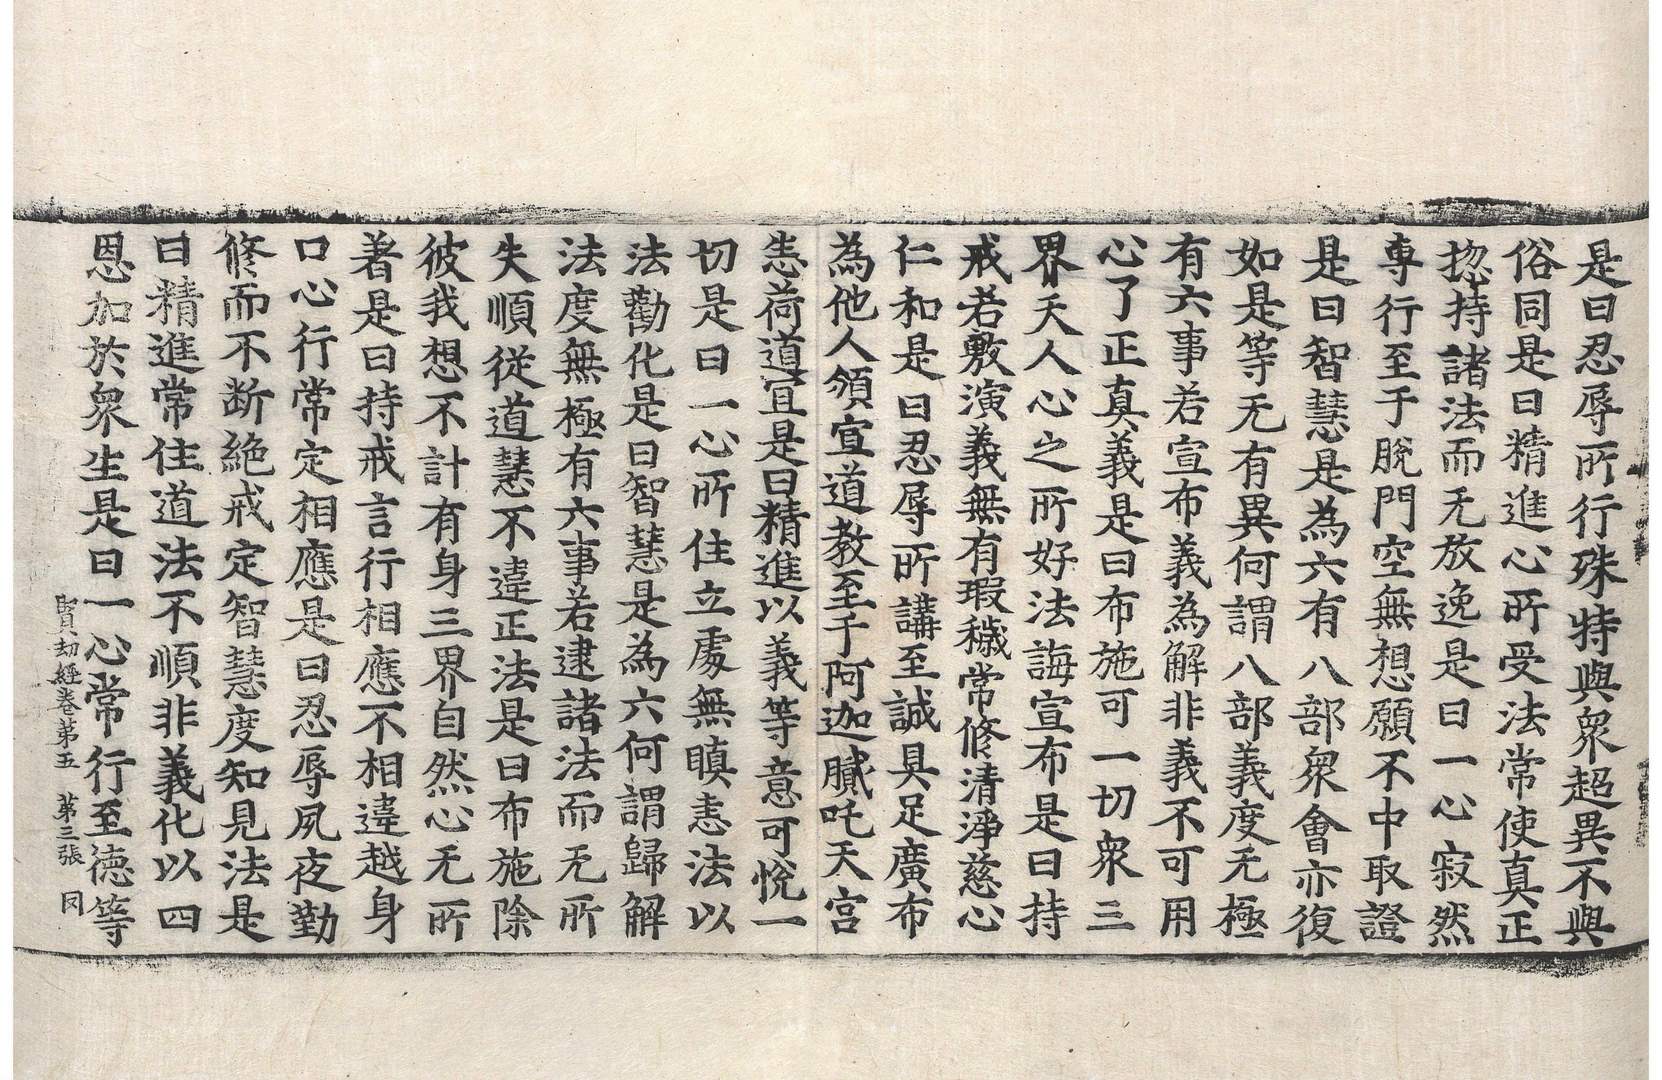 是曰忍辱所行殊特與衆超異不與
俗同是曰精進心所受法常使真正
揔持諸法而无放逸是曰一心寂然
專行至于脫門空無想願不中取證
是曰智慧是為六有八部衆會亦復
如是等无有異何謂八部義度无極
有六事若宣布義為解非義不可用
心了正真義是曰布施可一切衆三
界天人心之所好法誨宣布是曰持
戒若敷演義無有瑕穢常修清淨慈心
仁和是曰忍辱所講至誠具足廣布
為他人頒宣道教至于阿迦膩吒天宮
恙荷道宜是曰精進以義等意可悅一
切是曰一心所住立處無瞋恚法以
法勸化是曰智慧是為六何謂歸解
法度無極有六事若逮諸法而无所
失順從道慧不違正法是曰布施除
彼我想不計有身三界自然心无所
著是曰持戒言行相應不相違越身
口心行常定相應是曰忍辱夙夜勤
修而不斷絶戒定智慧度知見法是
曰精進常住道法不順非義化以四
恩加於衆生是曰一心常行至德等
賢劫經卷第五 第三張 冈